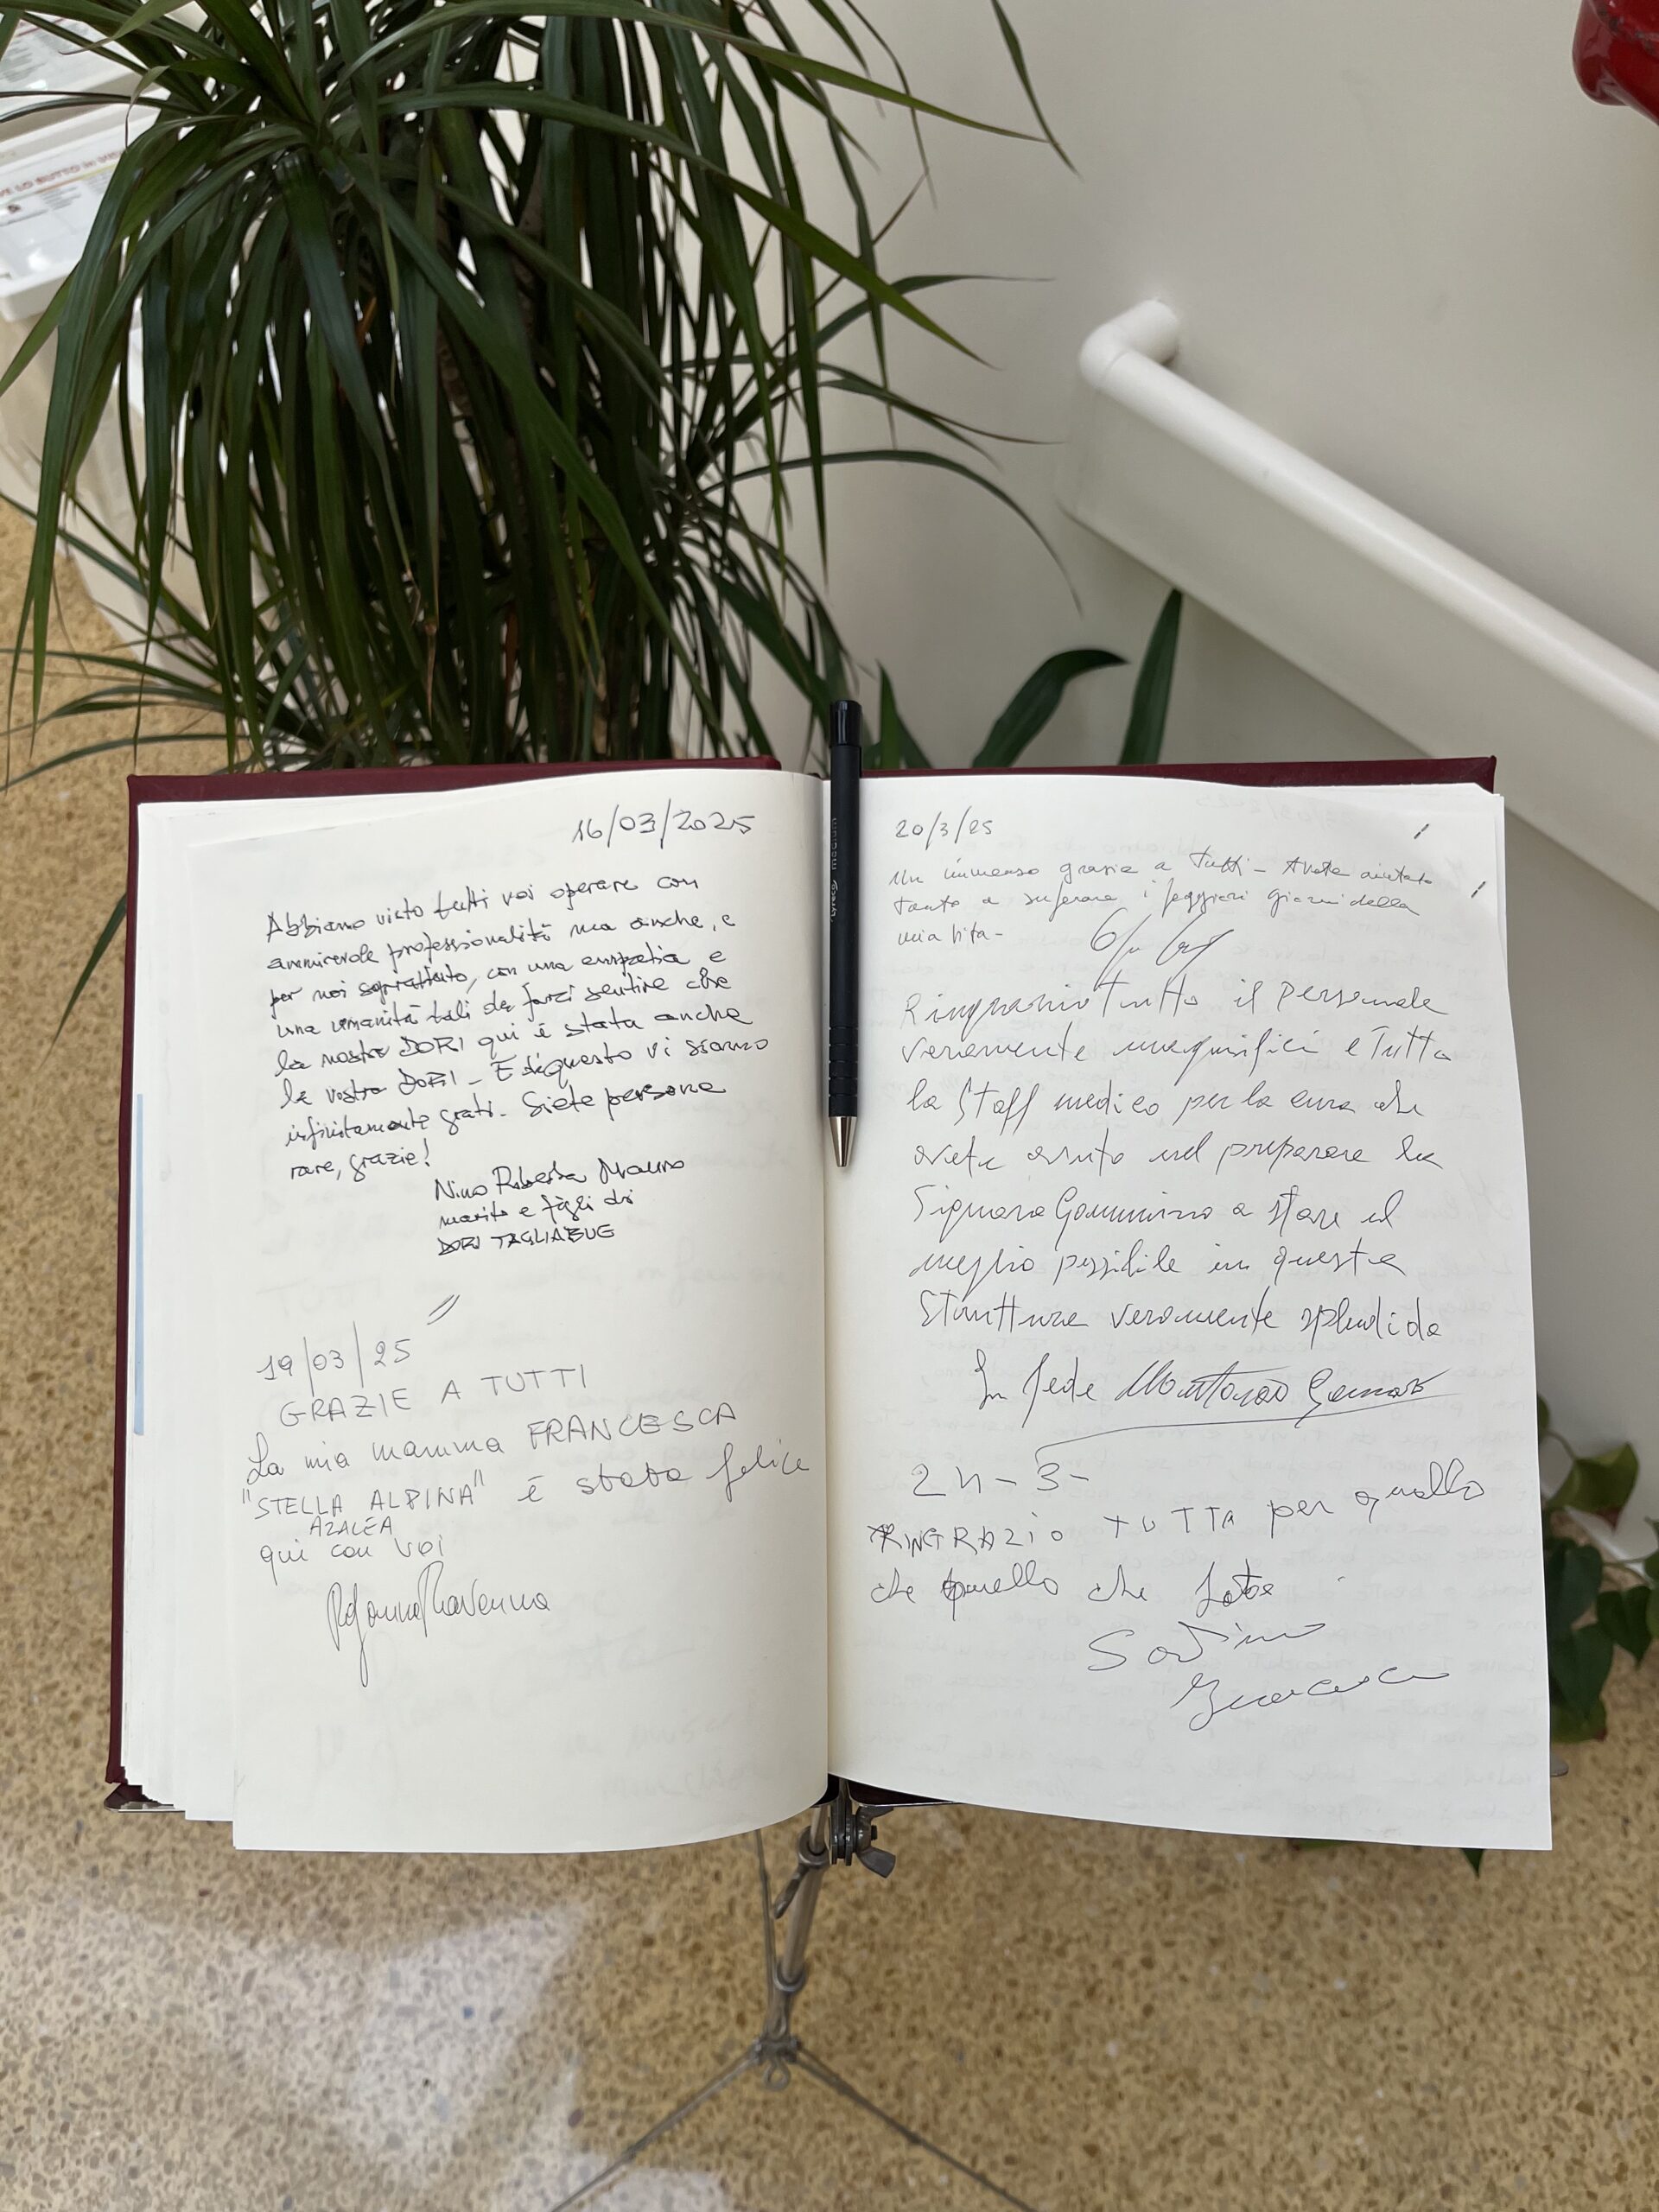 VE LO BUTTO
16/03/2025
Abbiamo visto tutti voi operare con
ammirevole professionalità ma anche, e
per noi soprattutto, con una empatia e
una umanità tali da farci sentire che
la nostra DORI qui è stata anche
la vostra DORI - E di questo vi siamo
infinitamente grati. Siete persone
rare, grazie!
Nino Roberta Mauro
marito e figli di
DORI TAGLIABUE
19/03/25
GRAZIE A TUTTI
La mia mamma FRANCESCA
"STELLA ALPINA" è stata felice
AZALEA
qui con voi
Ravenna
Lyreco medium
20/3/25
Un immenso grazie a tutti - Avete aiutato
tanto a superare i peggiori giorni della
mia vita -
Ringrazio tutto il personale
veramente magnifici e Tutta
la Staff medico per la cura che
avete avuto nel preparare la
Signora a stare al
meglio possibile in questa
Struttura veramente splendida
In fede
24-3-
RINGRAZIO TUTTA per quello
che quello che fate
Francesca